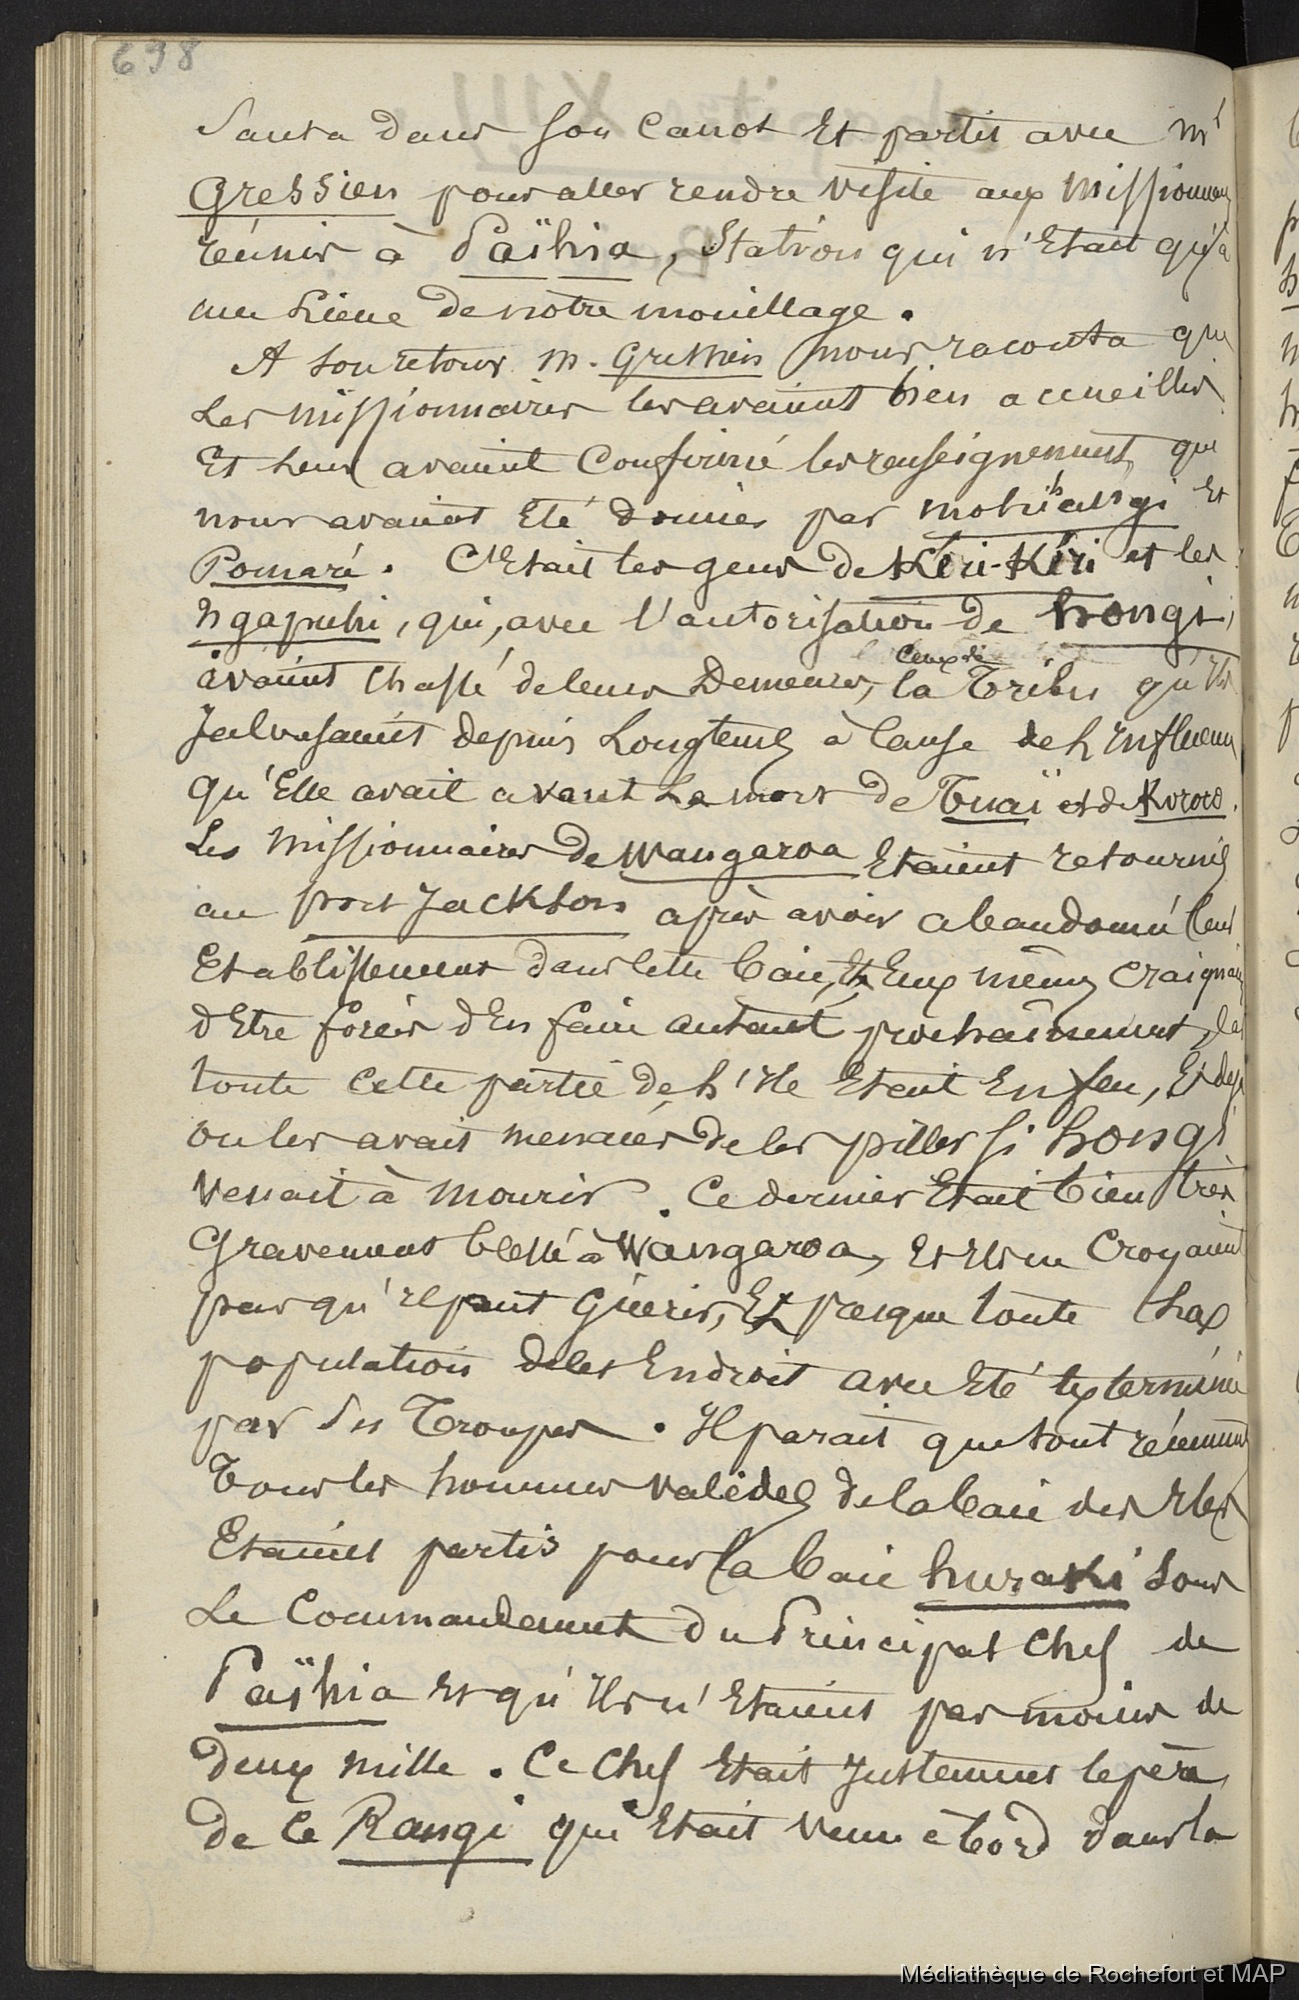 698
Sauta dans son Canot Et partit avec Mr
Gressien pour aller rendre visite aux Missionnaires
réunis à Païhia, Station qui n'Etait qu'à
une Lieue de notre mouillage.
A son retour M. Gressien nous raconta que
Les Missionnaires les avaient bien accueillis
Et Leur avaient Confirmé les renseignements que
nous avaient Eté donnés par Mohiangi Et
Pomaré. C'Etait les gens de Kéri-Kéri et les
Ngapuhi, qui, avec l'autorisation de hongi,
avaient Chassé de leurs Demeures, Ceux de la Tribu qu'Ils
Jalousaient depuis Longtems à Cause de L'Influence
qu'Elle avait avant La mort de Tuaï et de Kororo.
Les Missionnaires de Wangaroa Etaient retournés
au port Jackson après avoir abandonné leur
Etablissement dans Cette baie, Et Eux mêmes Craignaient
d'Etre forcés d'En faire autant prochainement,
toute Cette partie de L'Ile Etait En feu, Et déjà
on les avait menacés de les piller si hongi
Venait à Mourir. Ce dernier Etait bien très
Gravement blessé à Wangaroa, Et Ils ne Croyaient
pas qu'Il peut Guérir, Et presque toute la
population de Cet Endroit avec Eté Exterminée
par Ses Troupes. Il parait que tout récemment
Tous les hommes valides de la baie des Iles
Etaient partis pour la baie huraki Sous
Le Commandement du Principal Chef de
Païhia Et qu'Ils n'Etaient pas moins de
deux mille. Ce Chef Etait Justement le père
de Ce Rangi qui Etait venu à bord dans la
Médiathèque de Rochefort et MAP